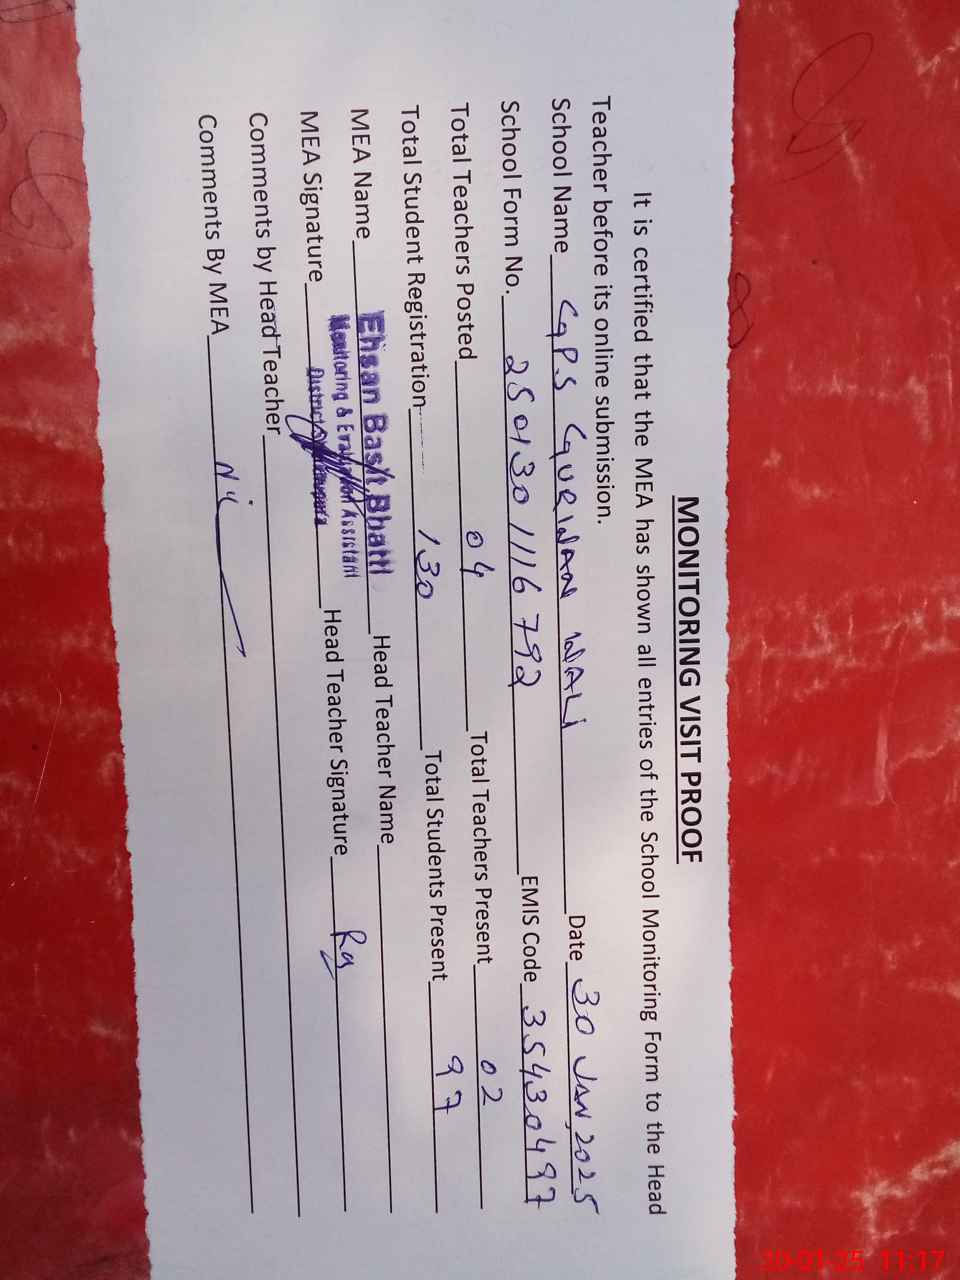 MONITORING VISIT PROOF
It is certified that the MEA has shown all entries of the School Monitoring Form to the Head
Teacher before its online submission.
School Name GPS GURWAAN WALI Date 30 JAN, 2025
School Form No. 250130 1116 792 EMIS Code 35430497
Total Teachers Posted 04 Total Teachers Present 02
Total Student Registration 130 Total Students Present 97
MEA Name Ehsan Basit Bhatti Head Teacher Name
Monitoring & Evaluation Assistant
MEA Signature District Head Teacher Signature
Comments by Head Teacher
Comments By MEA Nil
30-01-25 11:17